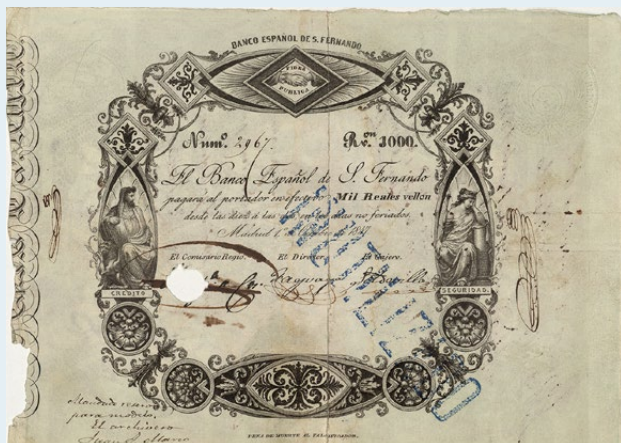 BANCO ESPAÑOL DE S. FERNANDO
FIDES
PUBLICA
Num.º 2967. R.ˢ ᵛⁿ 1000.
El Banco Español de S. Fernando
pagará al portador en efectivo Mil Reales vellon
desde las diez á las dos en los dias no feriados.
Madrid 1.º de 1847
El Comisario Regio. El Director. El Cajero.
CREDITO
SEGURIDAD.
para modelo.
El archivero
PENA DE MUERTE EL FALSIFICADOR.